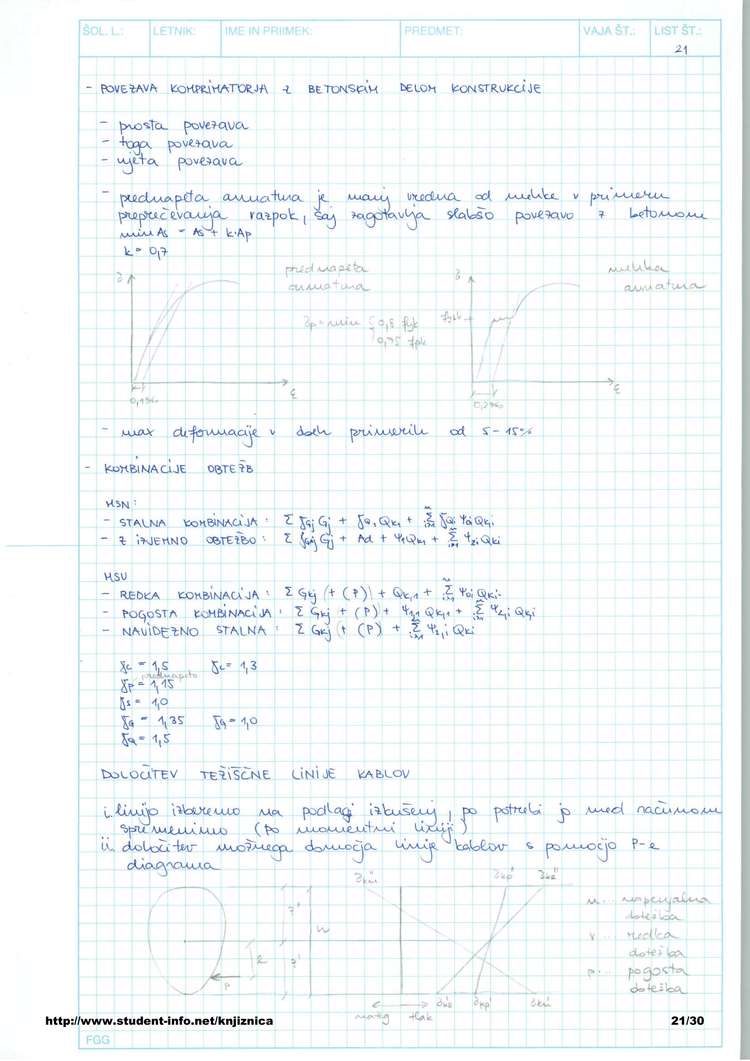 ŠOL. L.: LETNIK: IME IN PRIIMEK: PREDMET: VAJA ŠT.: LIST ŠT.:
21
- POVEZAVA KOMPRIMATORJA z BETONSKIM DELOM KONSTRUKCIJE
- prosta povezava
- toga povezava
- ujeta povezava
- prednapeta armatura je manj vredna od mehke v primeru
preprečevanja razpok, saj zagotavlja slabšo povezavo z betonom
min As = As + k·Ap
k = 0,7
prednapeta
armatura
mehka
armatura
0,8 fyk
0,75 fpk
ε
ε
0,1%
0,2%
- max deformacije v obeh primerih od 5-15%
- KOMBINACIJE OBTEŽB
MSN:
- STALNA KOMBINACIJA: Σ γGj Gj + γQ1 Qk1 + Σ γQi ψ0i Qki
- Z IZJEMNO OBTEŽBO: Σ γGAj Gj + Ad + ψ1 Qk1 + Σ ψ2i Qki
MSU
- REDKA KOMBINACIJA: Σ Gkj (+ (P)) + Qk,1 + Σ ψ0i Qki
- POGOSTA KOMBINACIJA: Σ Gkj + (P) + ψ1,1 Qk1 + Σ ψ2,i Qki
- NAVIDEZNO STALNA: Σ Gkj (+ (P) + Σ ψ2,i Qki
γc = 1,5 γc = 1,3
prednapeto
γp = 1,15
γs = 1,0
γG = 1,35 γG = 1,0
γQ = 1,5
DOLOČITEV TEŽIŠČNE LINIJE KABLOV
i. linijo izberemo na podlagi izkušenj, po potrebi jo med računom
spremenimo (po momentni liniji)
ii. določitev možnega območja linije kablov s pomočjo P-e
diagrama
h
z'
z'
P
nateg
tlak
obtežba
r... redka
obtežba
p... pogosta
obtežba
http://www.student-info.net/knjiznica
21/30
FGG